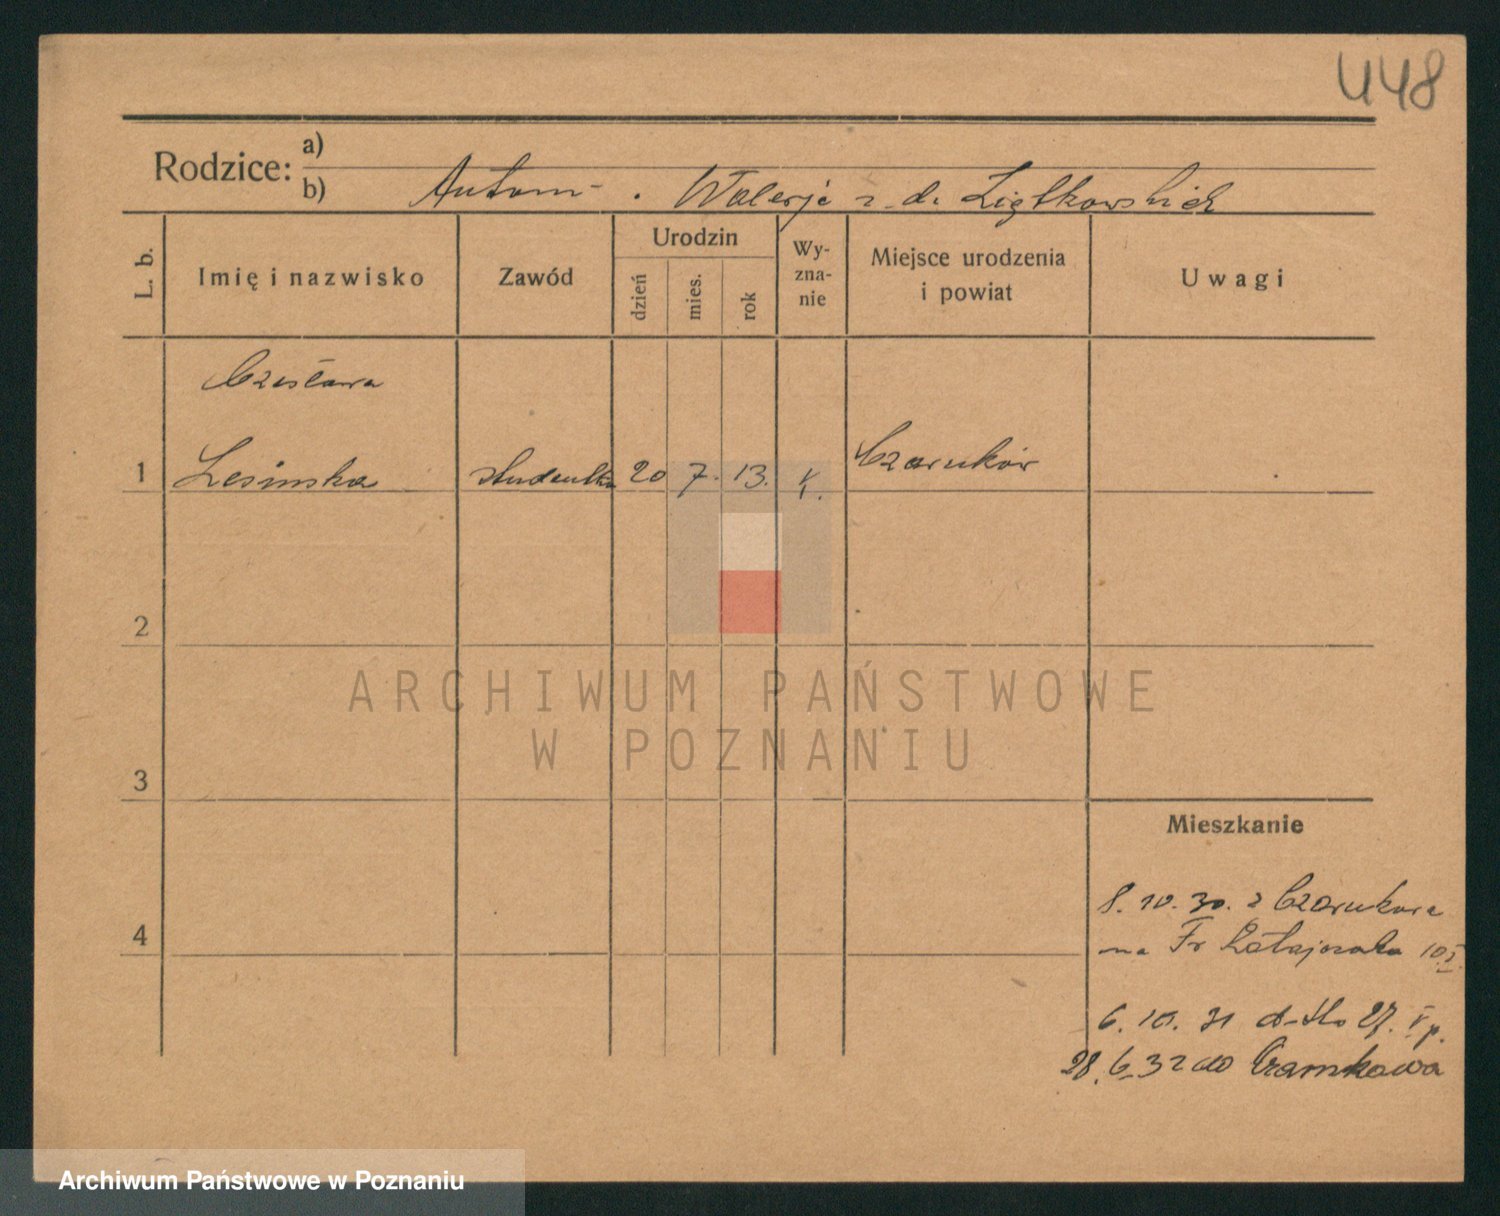 448
Rodzice:
a)
b) Antoni - . Walerja z d. Ziętkowskich
L. b.
Imię i nazwisko
Zawód
Urodzin
dzień
mies.
rok
Wy-
zna-
nie
Miejsce urodzenia
i powiat
Uwagi
Czesława
1 Lesinska studentka 20 7. 13. k. Czarnków
2
ARCHIWUM PAŃSTWOWE
W POZNANIU
3
Mieszkanie
8. 10. 30. z Czarnkowa
4
na Fr Ratajczaka 10
6. 10. 31 d-tto 27. V p.
28. 6. 32 do Czarnkowa
Archiwum Państwowe w Poznaniu